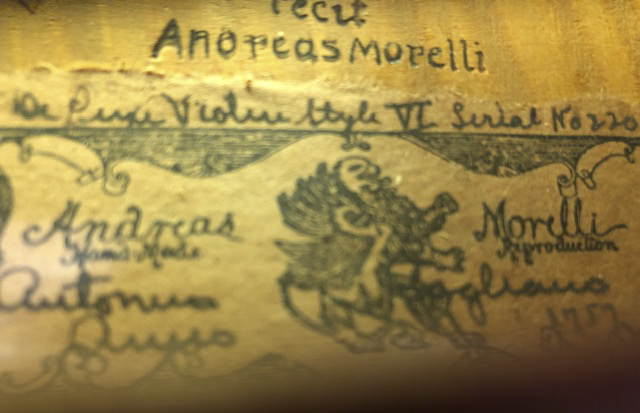 fecit
Andreas Morelli
De Luxe Violin Style VI Serial No 220
Andreas Morelli
Hand Made Reproduction
Antonius Gagliano
Anno 1757